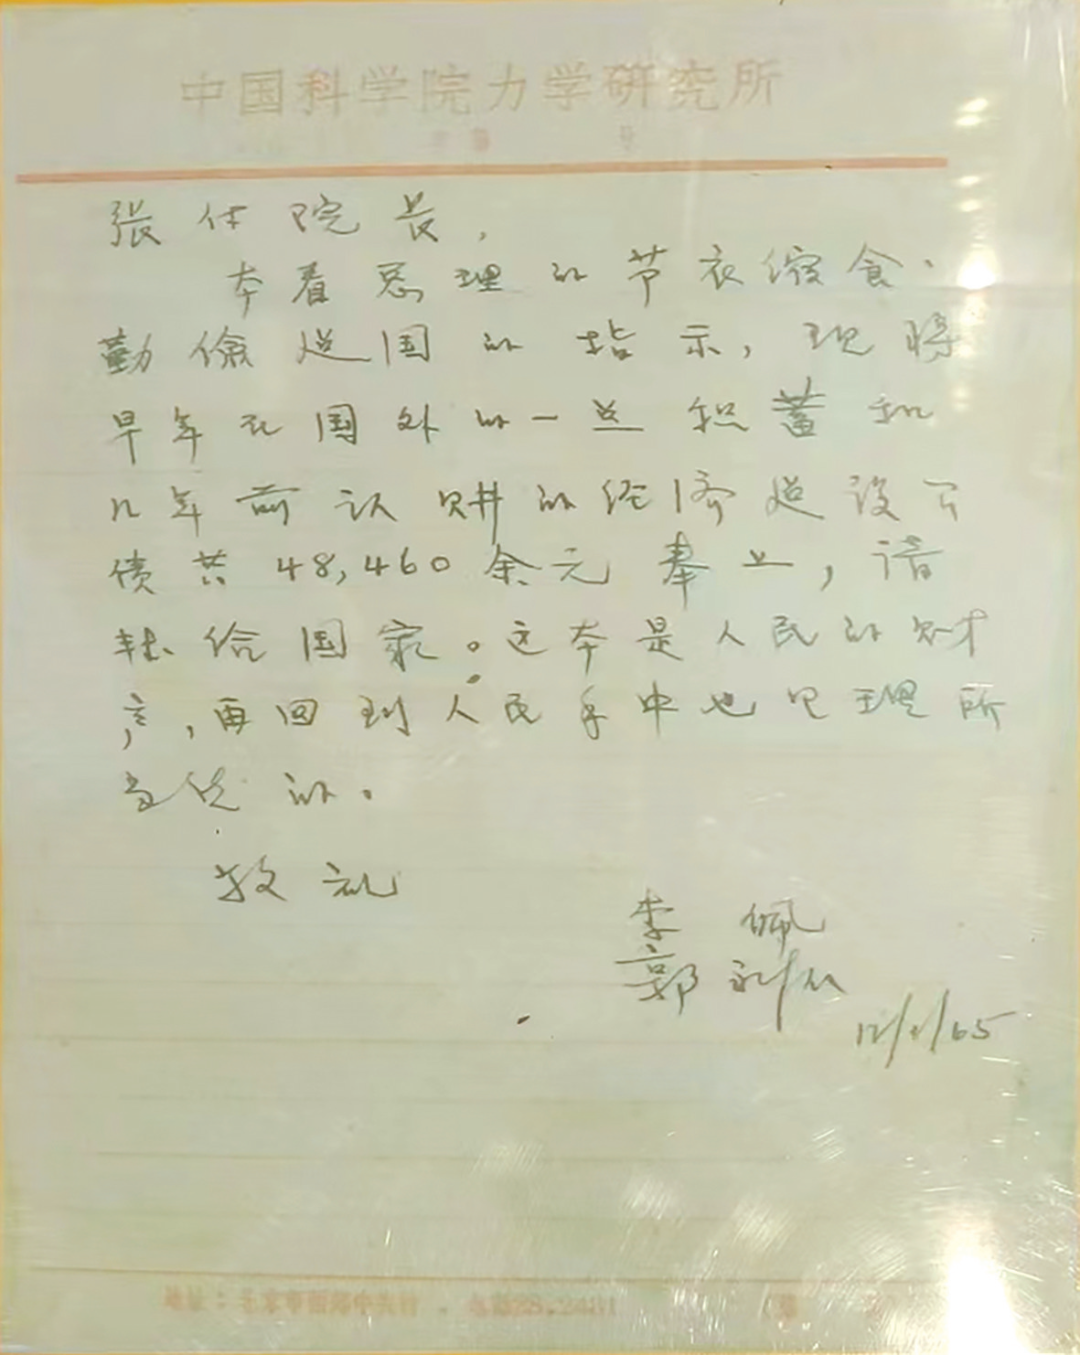 中国科学院力学研究所
张付院长，
本着总理的节衣缩食、
勤俭建国的指示，现将
早年在国外的一点积蓄和
几年前认购的经济建设公
债共48,460余元奉上，请
转给国家。这本是人民的财
产，再回到人民手中也是理所
当然的。
敬礼
李佩
郭永怀